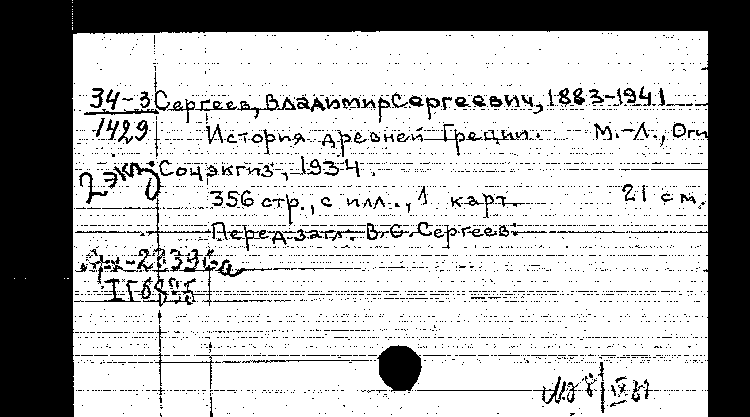 34-3 Сергеев, Владимир Сергеевич, 1883-1941
1429 История древней Греции. М.-Л., Оги
2 экз Соцэкгиз, 1934.
356 стр., с илл., 1 карт. 21 см.
Перед загл.: В.С.Сергеев.